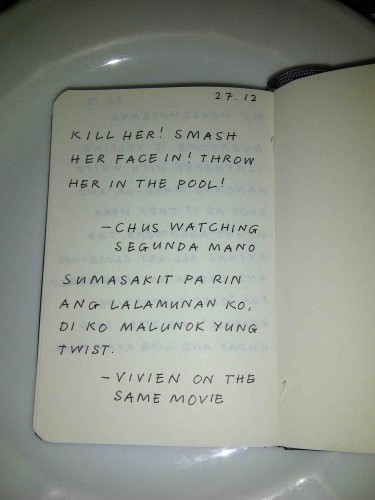 27.12
KILL HER! SMASH
HER FACE IN! THROW
HER IN THE POOL!
– CHUS WATCHING
SEGUNDA MANO
SUMASAKIT PA RIN
ANG LALAMUNAN KO,
DI KO MALUNOK YUNG
TWIST.
– VIVIEN ON THE
SAME MOVIE